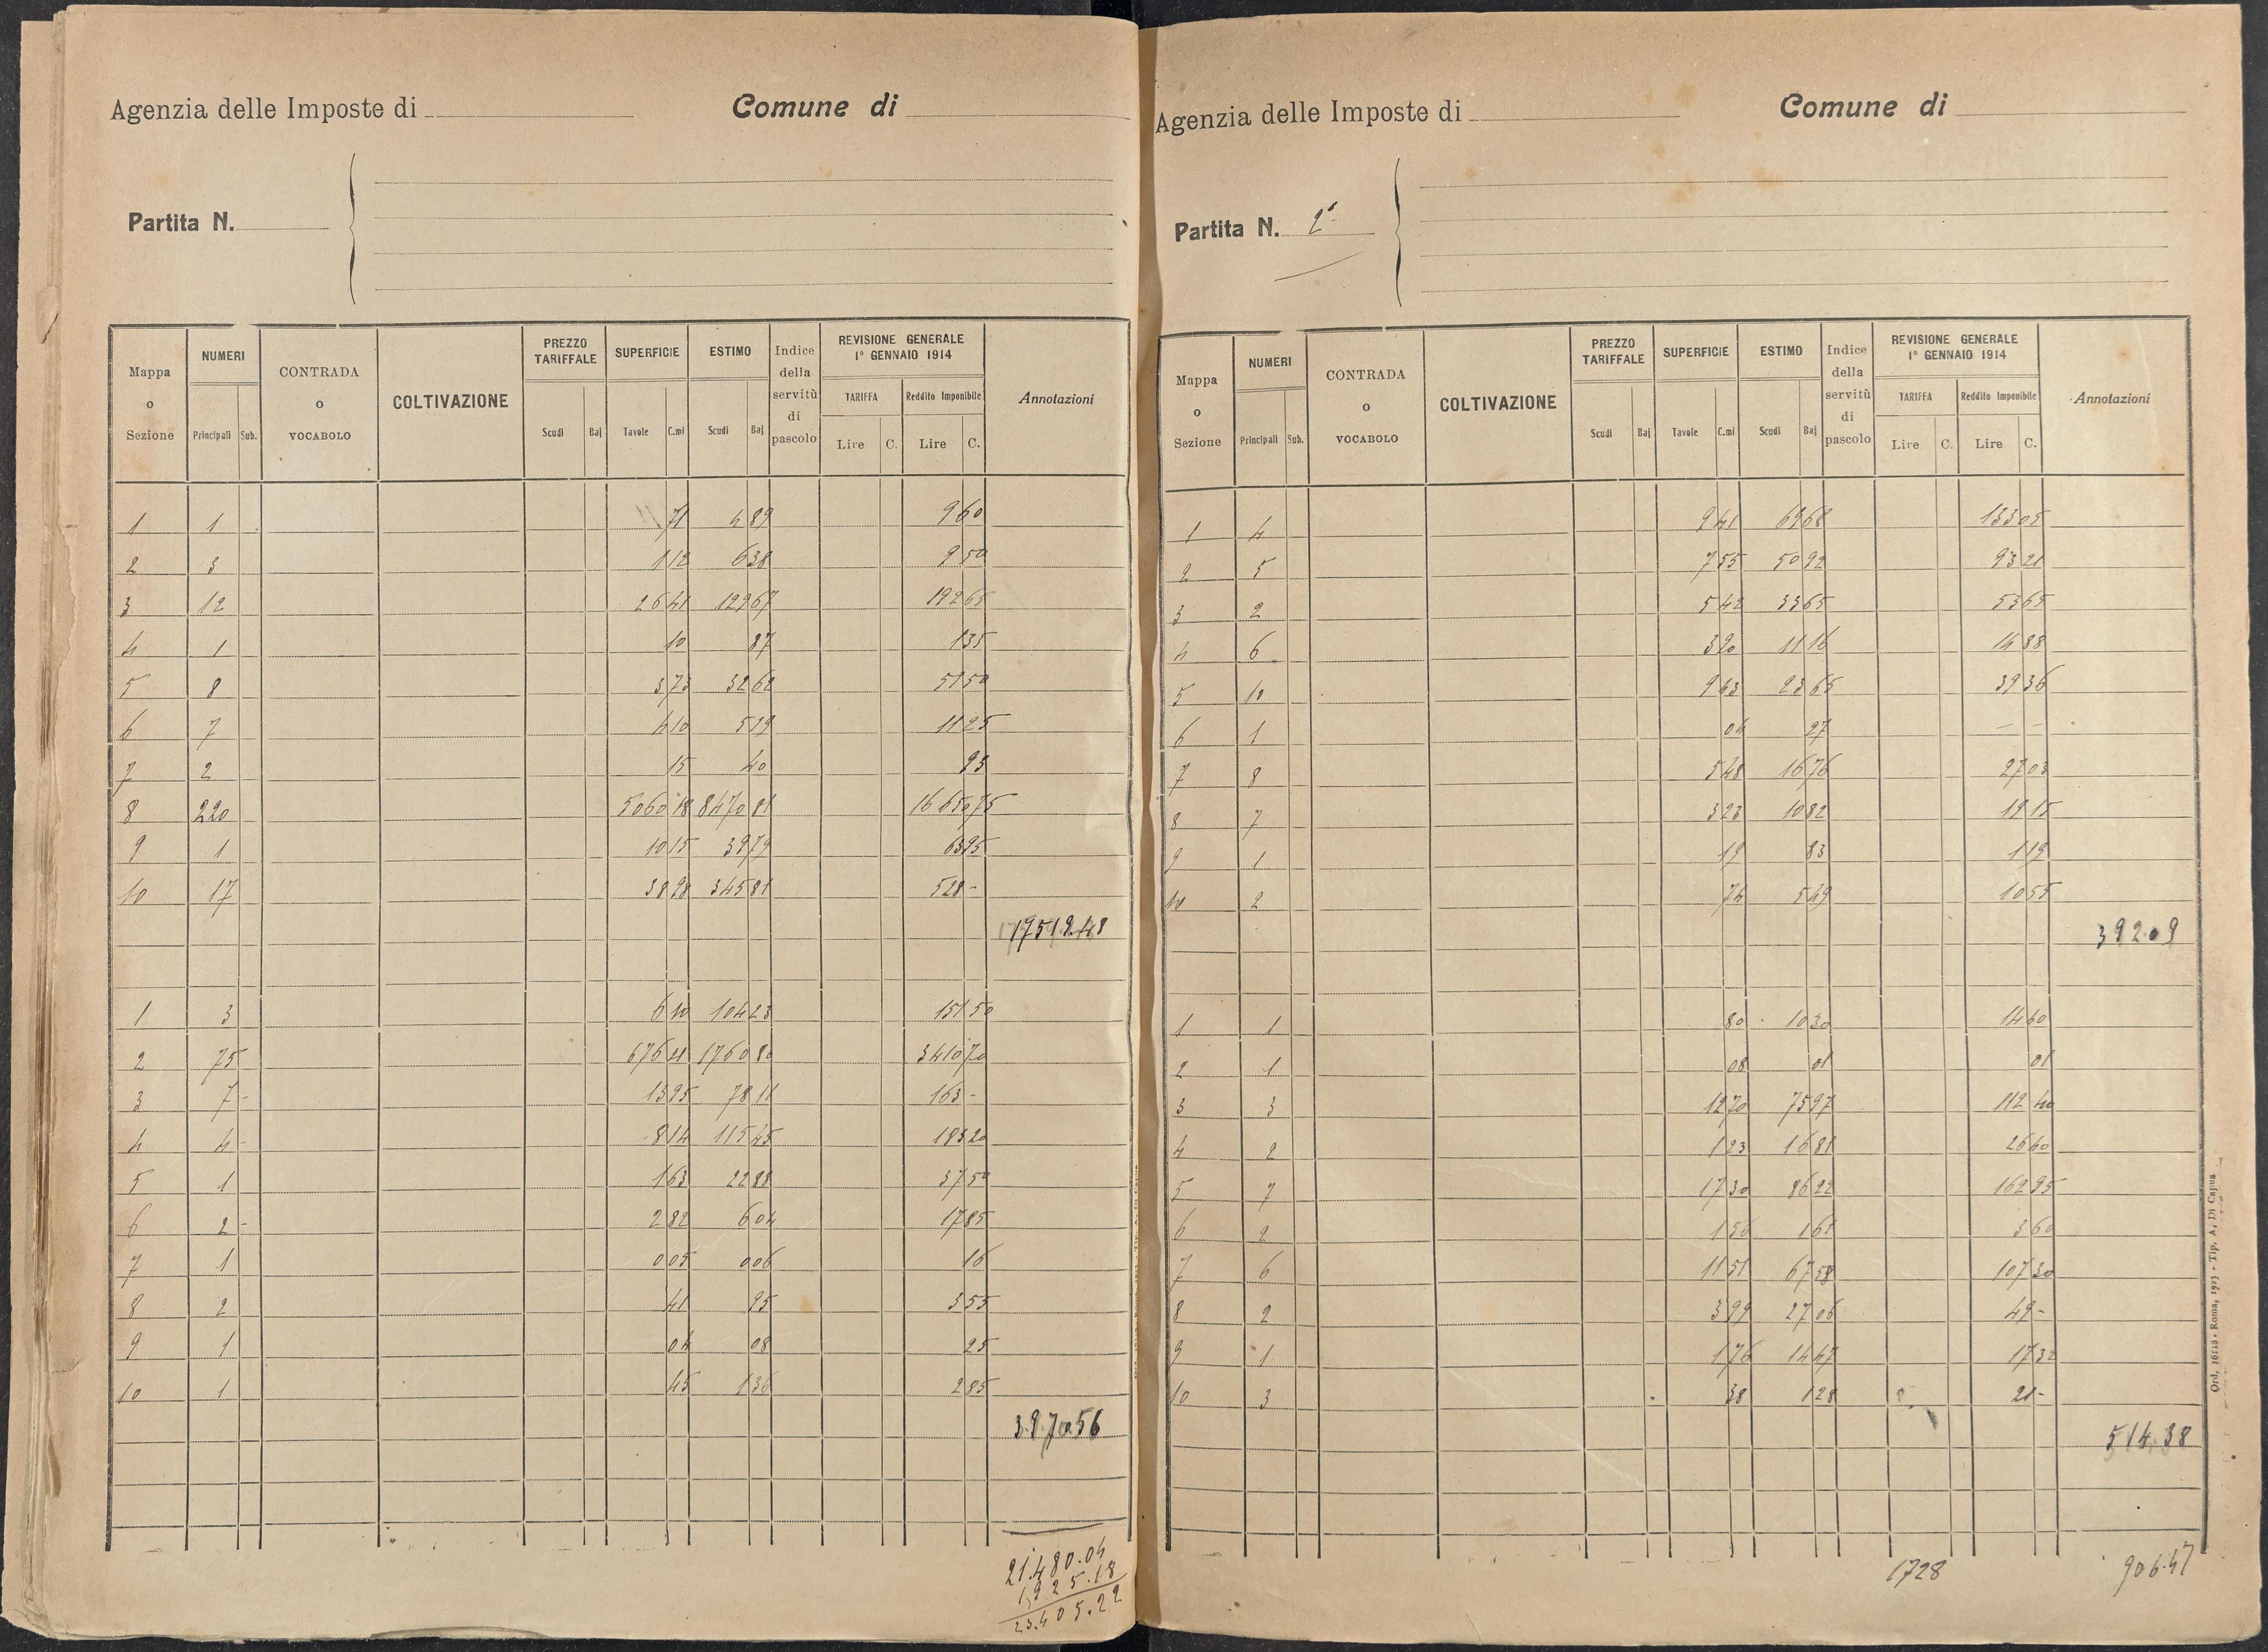 Agenzia delle Imposte di Comune di
Partita N.
Mappa o Sezione NUMERI Principali Sub. CONTRADA o VOCABOLO COLTIVAZIONE PREZZO TARIFFALE Scudi Baj SUPERFICIE Tavole C.mi ESTIMO Scudi Baj Indice della servitù di pascolo REVISIONE GENERALE 1° GENNAIO 1914 TARIFFA Lire C. Reddito Imponibile Lire C. Annotazioni
1 1 71 4 89 9 60
2 3 1 12 6 38 9 50
3 12 26 41 129 67 192 65
4 1 10 87 1 35
5 8 3 73 32 62 51 50
6 7 4 10 5 19 11 25
7 2 15 40 93
8 220 5060 18 8470 81 16650 75
9 1 10 15 39 79 63 95
10 17 38 98 345 81 528 -
3 6 10 104 23 151 50
1
2 75 676 41 1760 80 3410 70
3 7 - 13 95 78 11 163 -
4 4 - 8 14 115 45 183 20
5 1 1 63 22 88 37 50
6 2 - 2 82 6 04 17 85
7 1 0 05 0 06 16
8 2 41 95 3 55
9 1 04 08 25
10 1 45 1 36 2 85
3.970.56
21.480.04
1,925.18
23.405.22
Agenzia delle Imposte di Comune di
Partita N. 2ª
Mappa o Sezione NUMERI Principali Sub. CONTRADA o VOCABOLO COLTIVAZIONE PREZZO TARIFFALE Scudi Baj SUPERFICIE Tavole C.mi ESTIMO Scudi Baj Indice della servitù di pascolo REVISIONE GENERALE 1° GENNAIO 1914 TARIFFA Lire C. Reddito Imponibile Lire C. Annotazioni
1 4 9 41 69 68 133 05
2 5 7 55 50 92 93 21
3 2 5 42 33 65 53 65
4 6 3 20 11 16 14 88
5 10 9 43 23 65 39 36
6 1 04 27 — —
7 8 5 48 16 76 27 03
8 7 3 23 10 82 19 15
9 1 19 83 1 19
10 2 74 5 49 10 55
392.09
1 1 80 10 30 14 60
2 1 08 01 01
3 3 12 70 75 97 112 40
4 2 1 23 16 81 26 60
5 7 17 30 86 22 162 95
6 2 1 56 1 61 3 60
7 6 11 51 67 58 107 30
8 2 3 99 27 06 49 -
9 1 1 76 14 47 17 32
10 3 38 1 28 21 -
514.38
1728 906.47
Ord. 16118 - Roma, 1923 - Tip. A. Di Capua